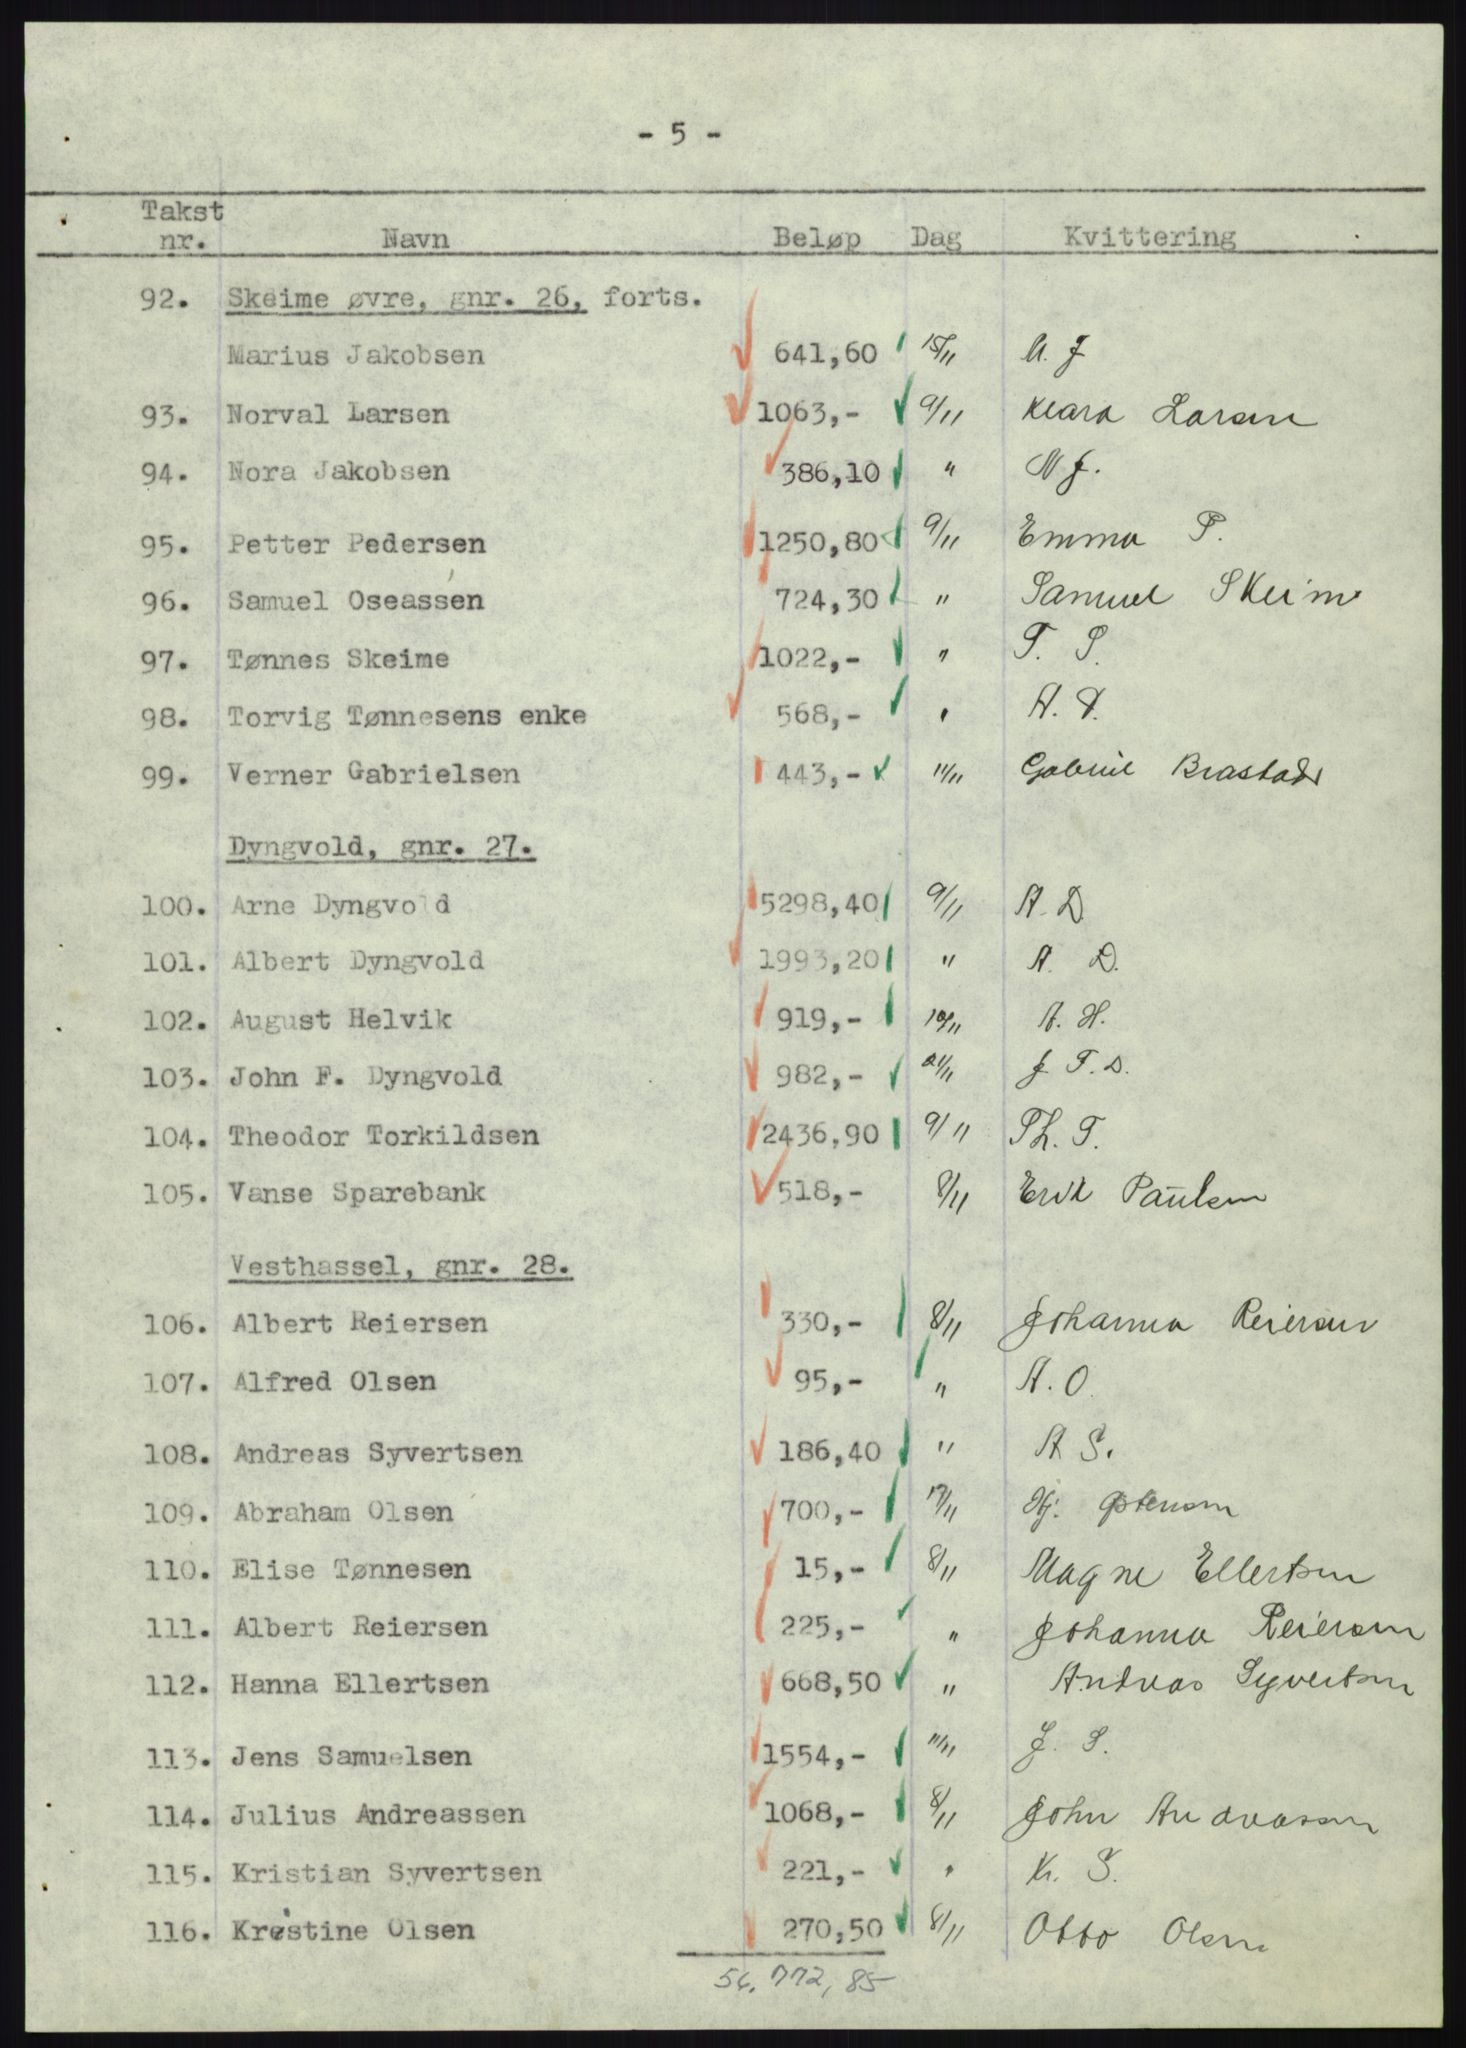 - 5 -
Takst
nr. Navn Beløp Dag Kvittering
92. Skeime øvre, gnr. 26, forts.
Marius Jakobsen 641,60 15/11 M. J
93. Norval Larsen 1063,- 9/11 Klara Larsen
94. Nora Jakobsen 386,10 " N J.
95. Petter Pedersen 1250,80 9/11 Emma P.
96. Samuel Oseassen 724,30 " Samuel Skeime
97. Tønnes Skeime 1022,- " T. S.
98. Torvig Tønnesens enke 568,- " A. T.
99. Verner Gabrielsen 443,- 11/11 Gabriel Brastad
Dyngvold, gnr. 27.
100. Arne Dyngvold 5298,40 9/11 A. D
101. Albert Dyngvold 1993,20 " A. D.
102. August Helvik 919,- 10/11 A. H.
103. John F. Dyngvold 982,- 21/11 J F. D.
104. Theodor Torkildsen 2436,90 9/11 Th. T.
105. Vanse Sparebank 518,- 8/11 Erik Paulsen
Vesthassel, gnr. 28.
106. Albert Reiersen 330,- 8/11 Johanna Reiersen
107. Alfred Olsen 95,- " A. O.
108. Andreas Syvertsen 186,40 " A S.
109. Abraham Olsen 700,- 17/11 Hj.
110. Elise Tønnesen 15,- 8/11 Magne Ellertsen
111. Albert Reiersen 225,- " Johanna Reiersen
112. Hanna Ellertsen 668,50 " Andreas Syvertsen
113. Jens Samuelsen 1554,- 11/11 J. S.
114. Julius Andreassen 1068,- 8/11 John Andreassen
115. Kristian Syvertsen 221,- " K. S.
116. Kristine Olsen 270,50 8/11 Otto Olsen
56.772,85